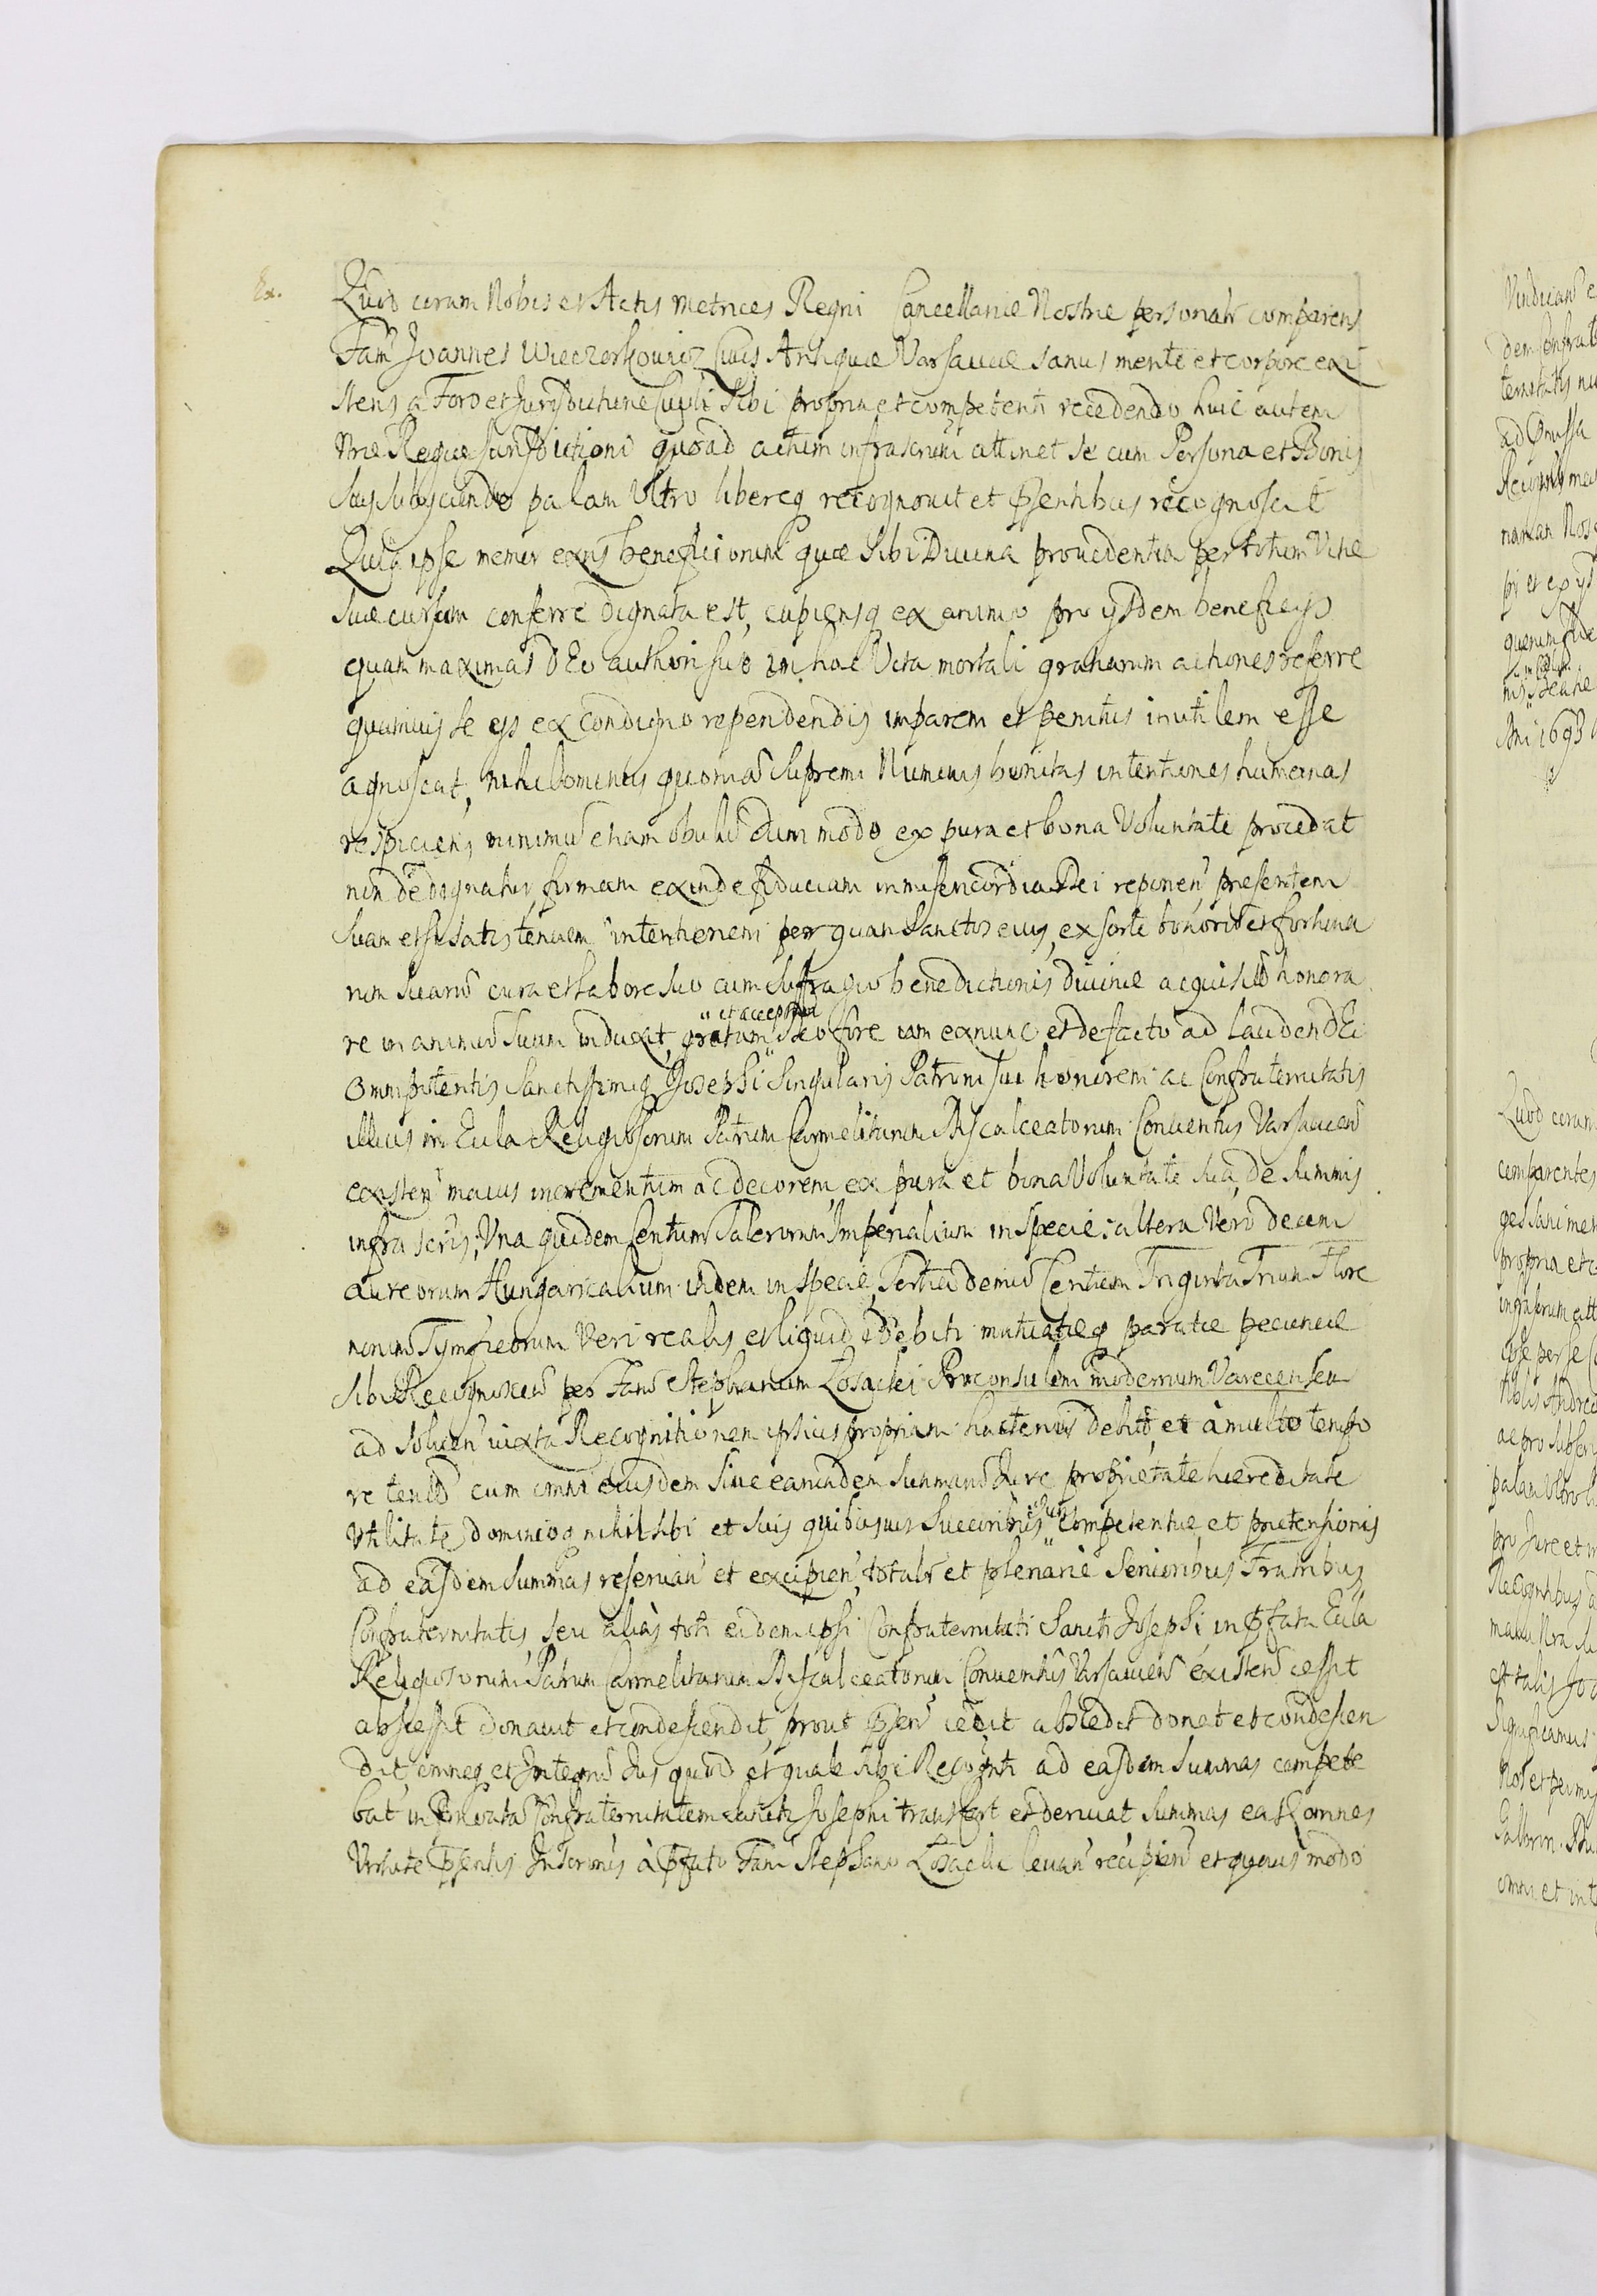 Ex.
Quod coram Nobis et Actis Metrices Regni Cancellariæ Nostræ personalr comparens
Fam̃ Joannes Wieczorkowicz Ciuis Antiquæ Varsauiæ sanus mente et corpore exi
stens a Foro et Jurisdictione sibi propria et competenti recedendo huic autem
Nræ Regiæ Jurisdictioni quoad actum infrascrium attinet se cum Persona et Bonis
suis subijciendo palam Ultro libereq recognouit et pñsentibus recognoscit
Quia ipse memor beneficiorum quæ sibi Diuina prouidentia per totum Vitæ
suæ cursum conferre dignata est, cupiensq ex animo pro ijsdem beneficijs
quam maximas DEo authori suo in hac Vita mortali gratiarum actiones referre
quamuis se ijs ex condigno rependendis imparem et penitus inutilem esse
agnoscat, nihilominus quoniã Supremi Numinis bonitas intentiones humanas
respiciens minimũ etiam obulũ dum modo ex pura et bona Voluntate procedat
non dedignatur, firmam exinde fiduciam in misericordia Dei reponen̄ presentem
suam etsi satis tenuem intentionem per quam Sanctos eius, ex sorte bonorũ et fortuna
rum suarũ cura et labore suo cum suffragio benedictionis diuinæ acquisitũ honora
re in animũ suum induxit, gratum " et acceptum DEo fore iam exnunc et defacto ad laudem DEi
Omnipotentis Sanctissimiq Josephi Singularis Patroni sui honorem ac Confraternitatis
illius in Eccla Religiosorum Patrum Carmelitarum Discalceatorum Conuentus Varsauien̄
existen̄ maius incrementum ac decorem, ex pura et bona Voluntate sua, de summis
infra scris, Una quidem Centum Talerorum Imperialium in specie: altera Vero decem
aureorum Hungaricalium itidem in specie, Tertia demũ Centum Triginta Trium Flore
norum Tymfieorum Veri realis et liquidi Debiti mutuatæq paratæ pecuniæ
sibi Recognoscen̄ per Fam̃ Stephanum Losacki Proconsulem modernum Varecensem
ad soluen̄ iuxta Recognitionem ipsius propriam hactenus debit, et a multo tempo
re tent̃ cum omni eiusdem siue earundem summarũ Jure proprietate hæreditate
Utilitate, dominioq nihil sibi et suis quibusuis Successoribus competentiæ et prætensionis
ad easdem summas reseruan̄ et excipien̄, totalr et plenarie Senioribus Fratribus
Confraternitatis seu aliàs toti eidem ipsi Confraternitati Sancti Josephi in pfata Eccla
Religiosorum Patrum Carmelitarum Discalceatorum Conuentus Varsauien̄ existen̄ cessit
abscessit donauit et condescendit, prout pñsen̄ cedit abscedit donat et condescen
dit, omneq et Integrũ Jus quod et quale sibi Recognti ad easdem summas compete
bat in pmemorata Confraternitatem Sancti Josephi transfert et deriuat summas eas omnes
Virtute pñsentis Inscrionis à pfato Fam̃ Stephano Losacki leuan̄ recipien̄ et quouis modo